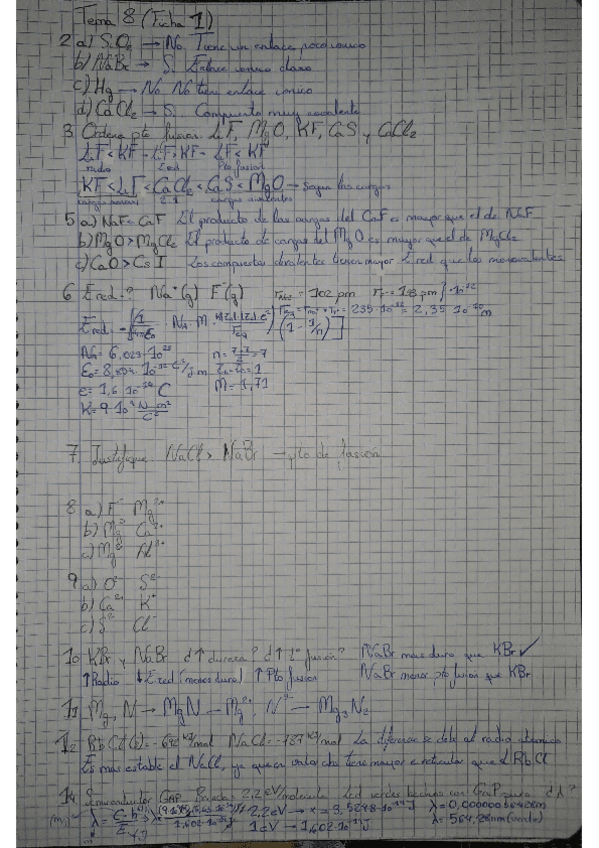 Tema 8 (Ficha 1)
2 a) SiO₂ → No. Tiene un enlace poco iónico
b) NaBr → Si. Enlace iónico claro
c) Hg → No. No tiene enlace iónico
d) CaCl₂ → Si. Compuesto muy
3 Ordena pto fusion LiF, MgO, KF, CaS y CaCl₂
LiF < KF - LiF > KF - LiF < KF
radio Ered Pto fusion
KF < LiF < CaCl₂ < CaS < MgO → Segun las cargas
2·1
5 a) NaF < CaF El producto de las cargas del CaF es mayor que el de NaF
b) MgO > MgCl₂ El producto de cargas del MgO es mayor que el de MgCl₂
c) CaO > CsI Los compuestos divalentes tienen mayor Ered que los monovalentes
6 Ered? Na⁺(g) F⁻(g) = 102 pm
= 235·10⁻¹² = 2,35·10⁻¹⁰m
Ered = (1 - 1/n)]
NA = 6,023·10²³ n = 7+7/2 = 7
ε₀ = 8,854·10⁻¹² C²/J m = 1
e = 1,6·10⁻¹⁹ C M = 1,71
K = 9·10⁹ N m²/C²
7 Justifique NaCl > NaBr → pto de fusión
8 a) F⁻ Mg²⁺
b) Mg²⁺ Ca²⁺
c) Mg²⁺ Al³⁺
9 a) O²⁻ S²⁻
b) Ca²⁺ K⁺
c) S²⁻ Cl⁻
10 KBr y NaBr d↑ dureza? d↑ Tª fusión? NaBr mas duro que KBr ✓
↑Radio ↓Ered (menos dura) ↑Pto fusion NaBr menor pto fusion que KBr
11 Mg, N → MgN → Mg²⁺, N³⁻ → Mg₃N₂
12 RbCl(s) = -692 KJ/mol NaCl = -787 KJ/mol La diferencia se debe al radio atomico
Es mas estable el NaCl, ya que en valor abs tiene mayor e reticular que el RbCl
14 Semiconductor GaP 2,2 eV/molecula Led verdes hechos con GaP dλ?
λ = C·h/E 2,2 eV → x = 3,5248·10⁻¹⁹J
1 eV → 1,602·10⁻¹⁹J λ = 564,28nm (verde)